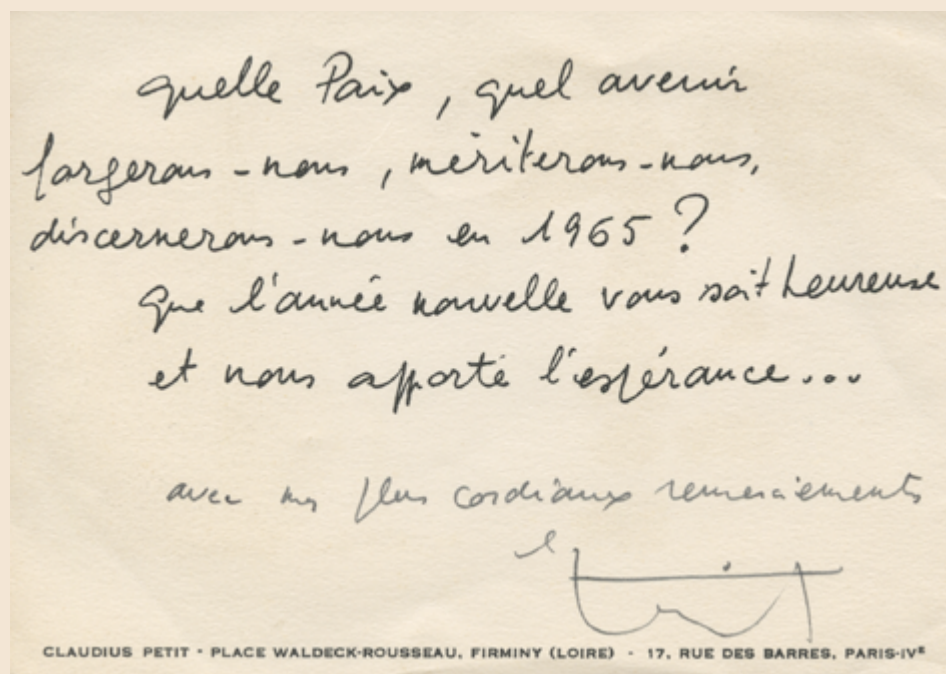 quelle Paix, quel avenir
forgerons-nous, mériterons-nous,
discernerons-nous en 1965 ?
Que l'année nouvelle vous soit heureuse
et nous apporte l'espérance...
avec mes plus cordiaux remerciements
CLAUDIUS PETIT - PLACE WALDECK-ROUSSEAU, FIRMINY (LOIRE) - 17, RUE DES BARRES, PARIS-IVE